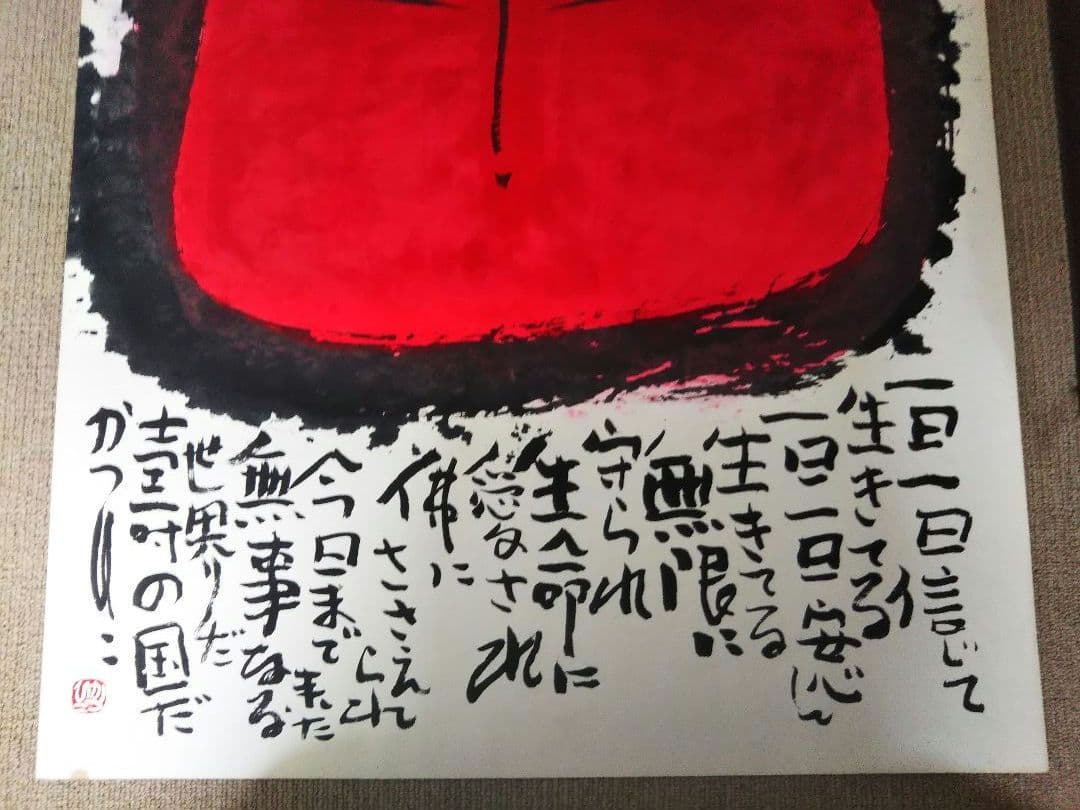 一日一日信じて
生きてる
一日一日安心
生きてる
無限に
守られ
生命に
愛され
佛に
ささえられて
今日まで来た
無事なる
世界だ
壽の国だ